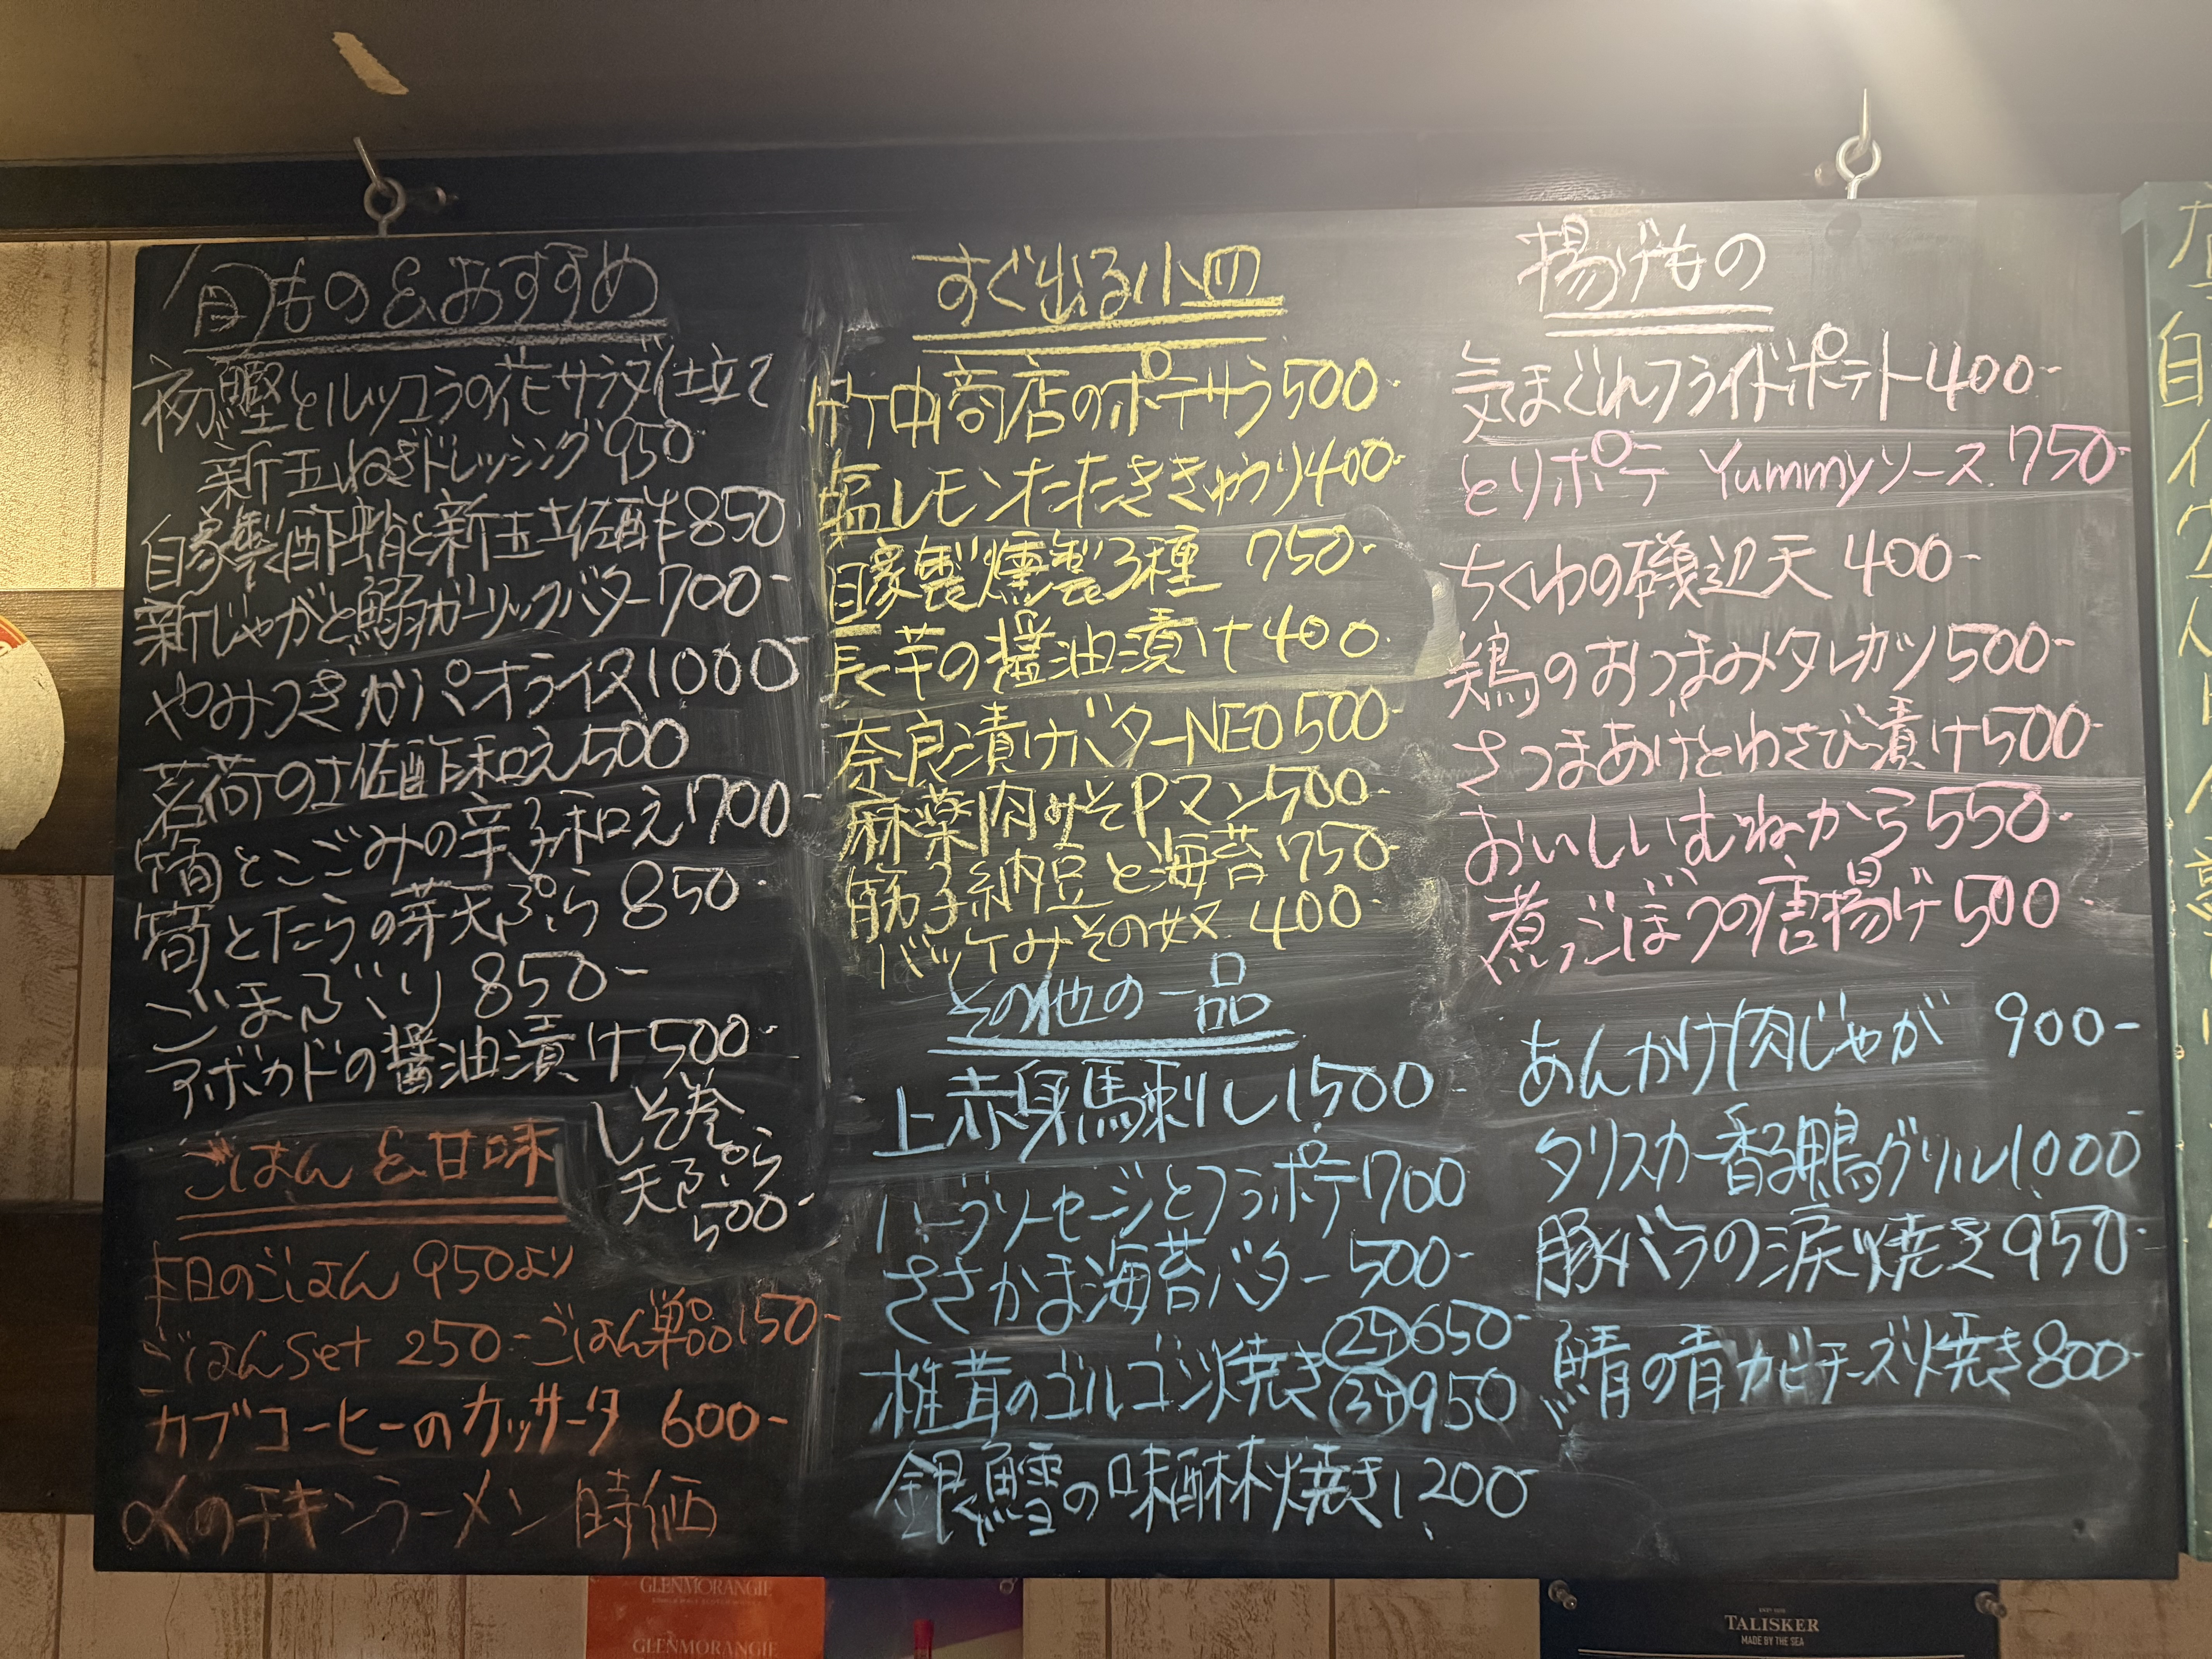 旬もの&おすすめ
初鰹とルッコラの花サラダ仕立て
新玉ねぎドレッシング 950
自家製酢蛸と新玉土佐酢 850
新じゃがと鰯ガーリックバター 700-
やみつきガパオライス 1000-
茗荷の土佐酢和え 500
筍とこごみの辛子和え 700-
筍とたらの芽天ぷら 850-
ごまぶり 850-
アボカドの醤油漬け 500-
しそ巻
天ぷら
500-
ごはん&甘味
本日のごはん 950より
ごはんset 250-ごはん単品 150-
カブコーヒーのカッサータ 600-
〆のチキンラーメン 時価
すぐ出る小皿
竹中商店のポテサラ 500-
塩レモンたたききゅうり 400-
自家製燻製3種 750-
長芋の醤油漬け 400-
奈良漬けバターNEO 500-
麻薬肉みそPマン 500-
筋子納豆と海苔 750-
バッケみその奴 400-
その他の一品
上赤身馬刺し 1500-
ハーブソーセージとフラポテ 700
ささかま海苔バター 500-
椎茸のゴルゴンゾ焼き 650-
950
銀鱈の味醂焼き 1,200-
揚げもの
気まぐれフライドポテト 400-
とりポテ Yummyソース 750-
ちくわの磯辺天 400-
鶏のおつまみタレカツ 500-
さつまあげとわさび漬け 500-
おいしいむねから 550-
煮ごぼうの唐揚げ 500-
あんかけ肉じゃが 900-
タリスカー香る鴨グリル 1,000-
豚バラの涙焼き 950-
鯖の青カビチーズ焼き 800-
GLENMORANGIE
GLENMORANGIE
TALISKER
MADE BY THE SEA